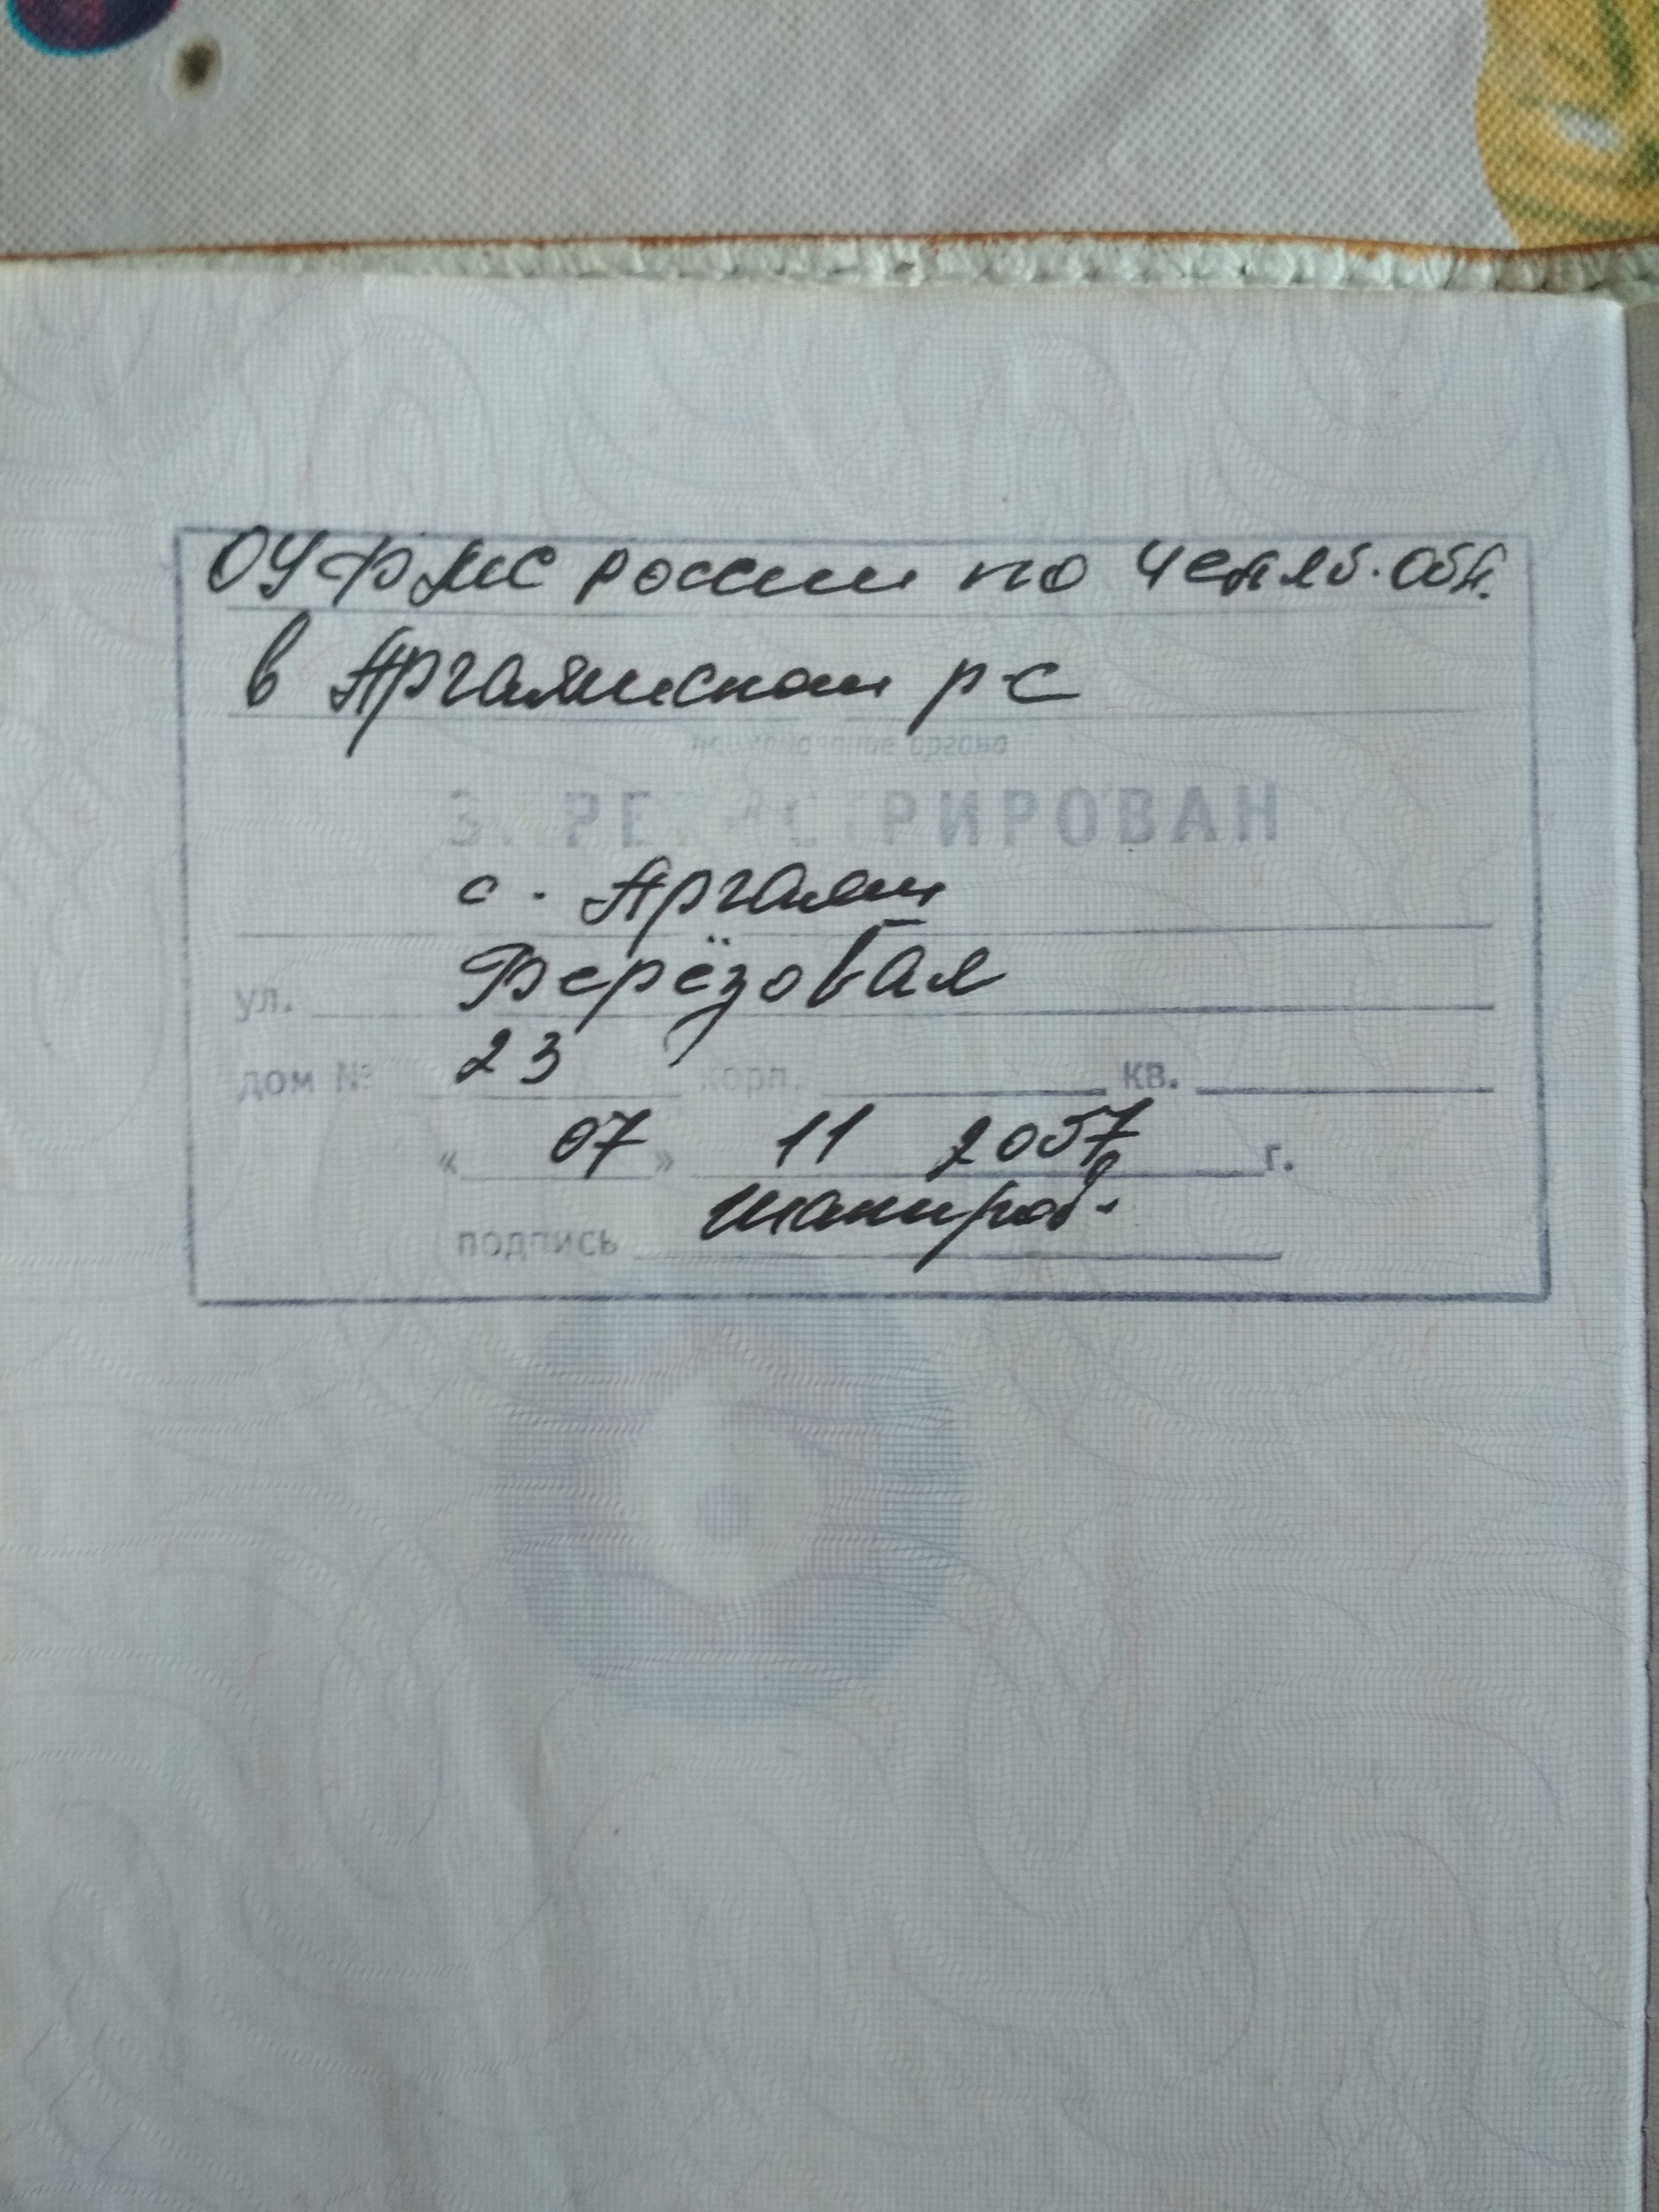 ОУФМС России по Челяб. обл.
в Аргаяшском р-е
наименование органа
ЗАРЕГИСТРИРОВАН
с. Аргаяш
ул. Берёзовая
дом № 23 корп. кв.
« 07 » 11 2007 г.
подпись Шакиров.